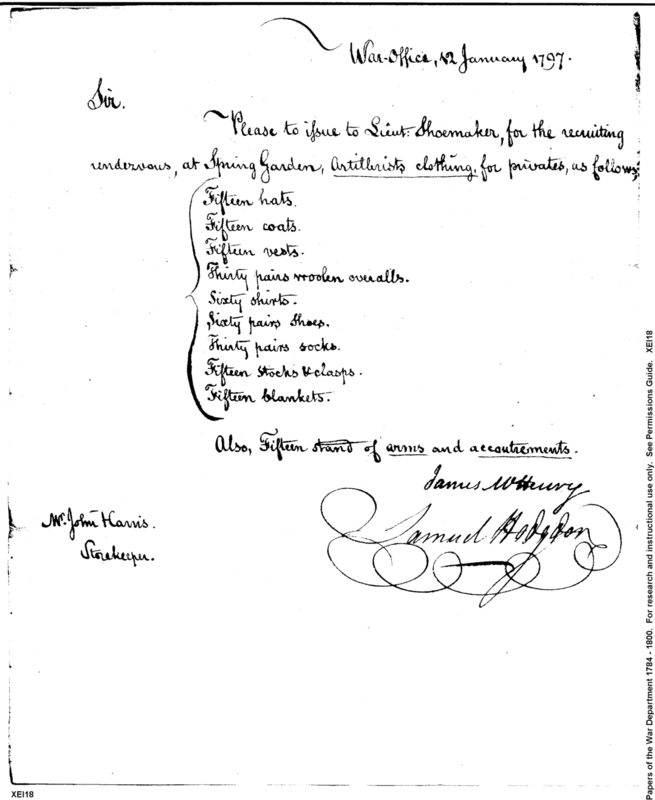 War-Office, 12 January 1797.
Sir.
Please to issue to Lieut: Shoemaker, for the recruiting
rendezvous, at Spring Garden, Artillerists clothing, for privates, as follows;
Fifteen hats.
Fifteen coats.
Fifteen vests.
Thirty pairs woolen overalls.
Sixty shirts.
Sixty pairs Shoes.
Thirty pairs socks.
Fifteen Stocks & clasps.
Fifteen blankets.
Also, Fifteen stand of arms and accoutrements.
James McHenry
Samuel Hodgdon
Mr. John Harris.
Storekeeper.
XEI18
Papers of the War Department 1784 - 1800. For research and instructional use only. See Permissions Guide. XEI18